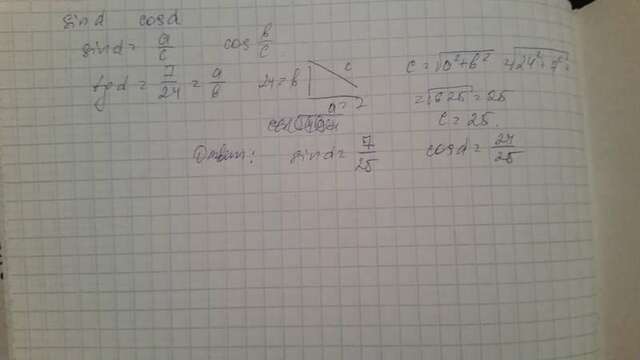 sin α cos α
sin α = a/c cos b/c
tg α = 7/24 = a/b
24 = b c
a = 7
c = √a² + b² = √24² + 7²
= √625 = 25
c = 25
Ответ: sin α = 7/25 cos α = 24/25